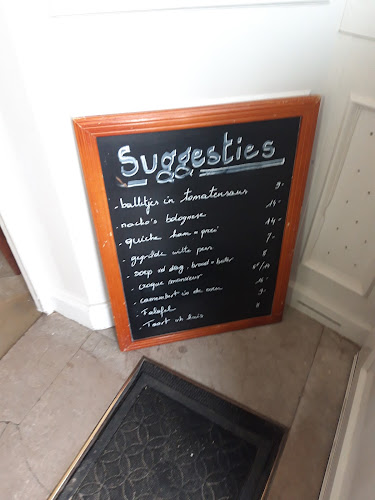 Suggesties
- balletjes in tomatensaus 9.-
- nacho's bolognese
- quiche ham + prei 14.-
- gegrilde witte pens 7.-
- soep vd dag, brood + boter 8
- croque monsieur
- camembert in de oven
- Falafel
- Taart vh huis 8